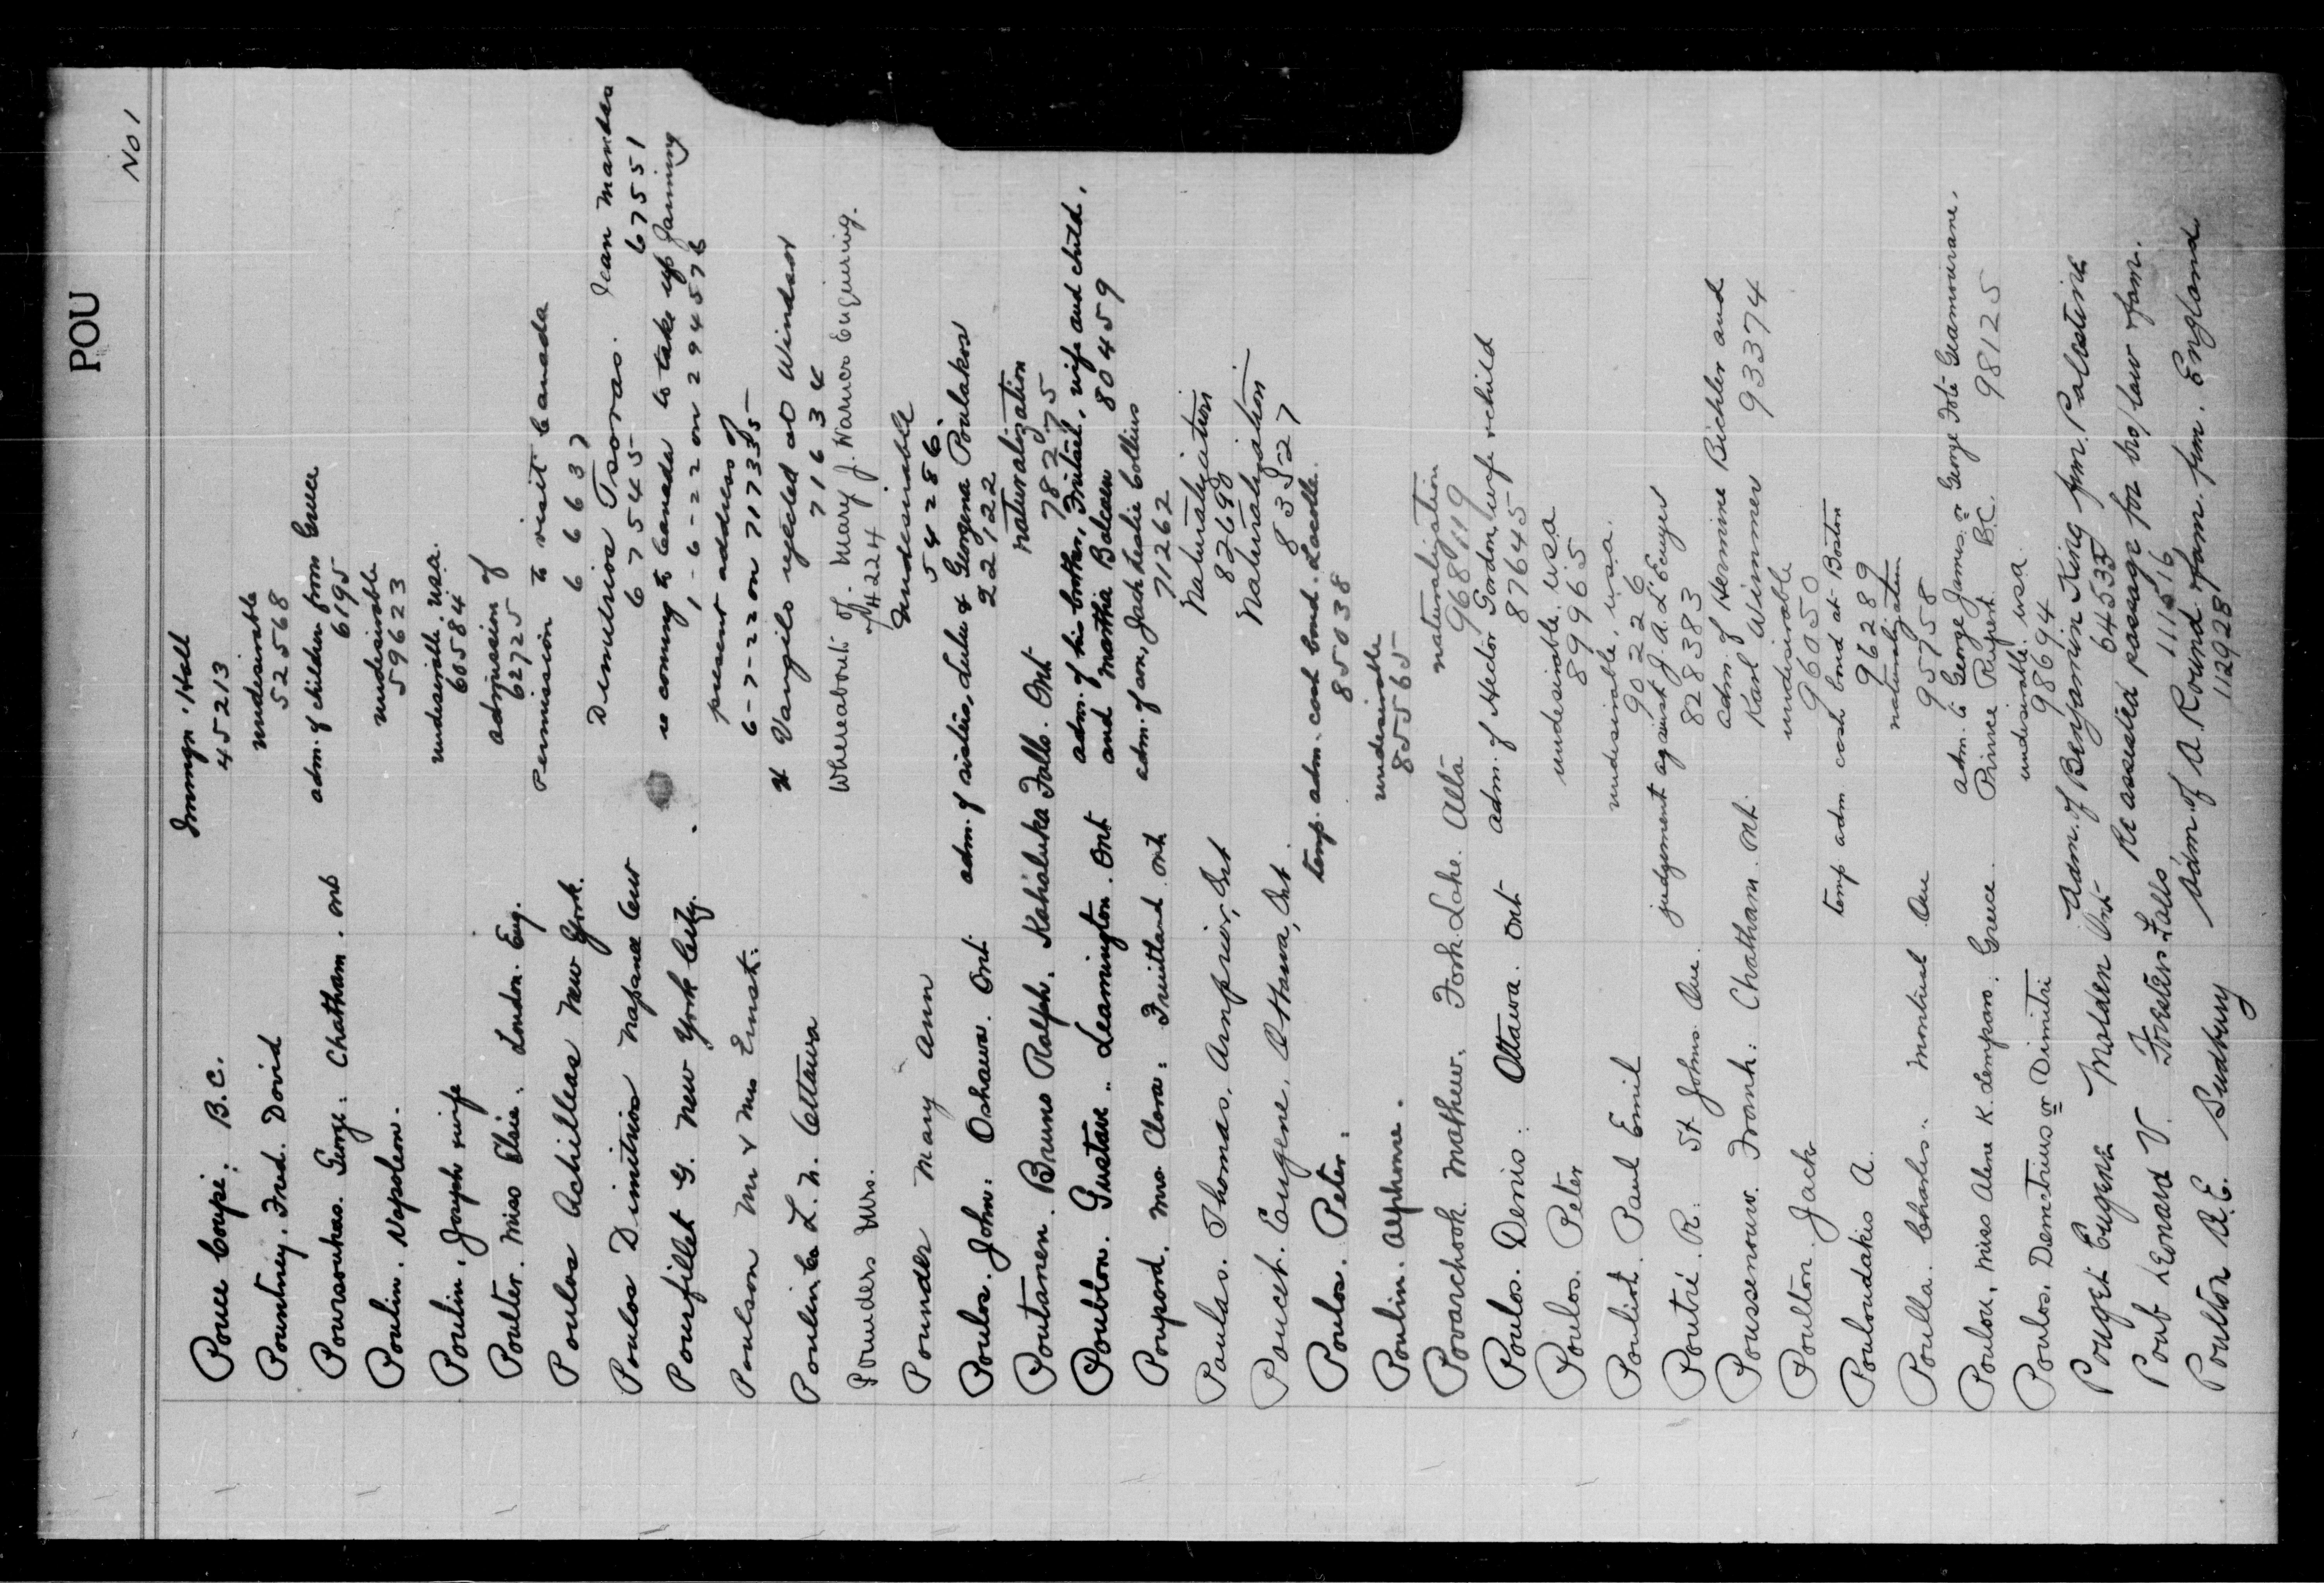 POU
No 1
Pouce Coupé: B.C. Immgn. Hall
45213
Pountney. Fred. David undesirable
52568
Poursouhas. George. Chatham. Ont adm. of children from Greece
6195
Poulin. Napoleon. undesirable
59623
Poulin, Joseph wife undesirable. U.S.A.
60584
Poulter. Miss Elsie. London. Eng. admission of
62725
Poulos Achilleas New York. Permission to visit Canada
66637
Poulos Dimitrios Napanee Demetrios Tsoras. Jean Mandes
67545 67551
Pourfillet G. New York City. is coming to Canada to take up farming
1-6-22 on 294576
Poulson Mr & Mrs Ernst. present address of
6-7-22 on 717335
Poulin L. N. Ottawa Vangilo rejected at Windsor
71634
Pounders Mrs. Whereabouts of. Mary J. Warnes Enquiring.
74224
Pounder Mary Ann undesirable
54286
Poulos. John. Oshawa. Ont adm. of sisters, Lulu & Georgena Poulakos
22122
Poutanen. Bruno Ralph. Kakabeka Falls. Ont naturalization
78275
Poublon. Gustave. Leamington. Ont adm. of his brother, wife and child,
and Martha Balcaen 80459
Poupord. Mrs Clara. Fruitland Ont adm. of son, Jack Leslie Collins
71262
Poulas. Thomas. Arnprior, Ont Naturalization
82698
Poucet. Eugene. Ottawa, Ont. Naturalization
83527
Poulos. Peter. temp. adm. cash bond. Lacolle.
85038
Poulin. Alphonse. undesirable
85565
Povarchook. Mathew. Fork Lake. Alta naturalization
968119
Poulos. Denis. Ottawa. Ont adm. of Hector Gordon, wife & child
87645
Poulos. Peter undesirable. USA
89965
Pouliot. Paul Emil undesirable, U.S.A.
90226
Poutré. R. St Johns Que. judgement against J. A. L'Ecuyer
828383
Poussenouw. Frank. Chatham. Ont. adm. of Hermine Bichler and
Karl Wimmer 93374
Poulton. Jack undesirable
96050
Pouloudakis A. temp adm cash bond at Boston
96289
Poulla. Charles. Montreal Que naturalization
95758
Poulou, Miss Alene K. Lempson. Greece. adm. to George James or George Foti Giannourane.
Prince Rupert B.C. 98125
Poulos. Demetrius or Dimitri undesirable. USA
98694
Pouget Eugene Malden Ont Adm. of Benjamin King frm. Palestine
64533
Poub Leonard V. Foresters Falls Re assisted passage for bro/law & fam.
111516
Poulton A.E. Sudbury Adm. of A. Round & fam. frm. England
112928